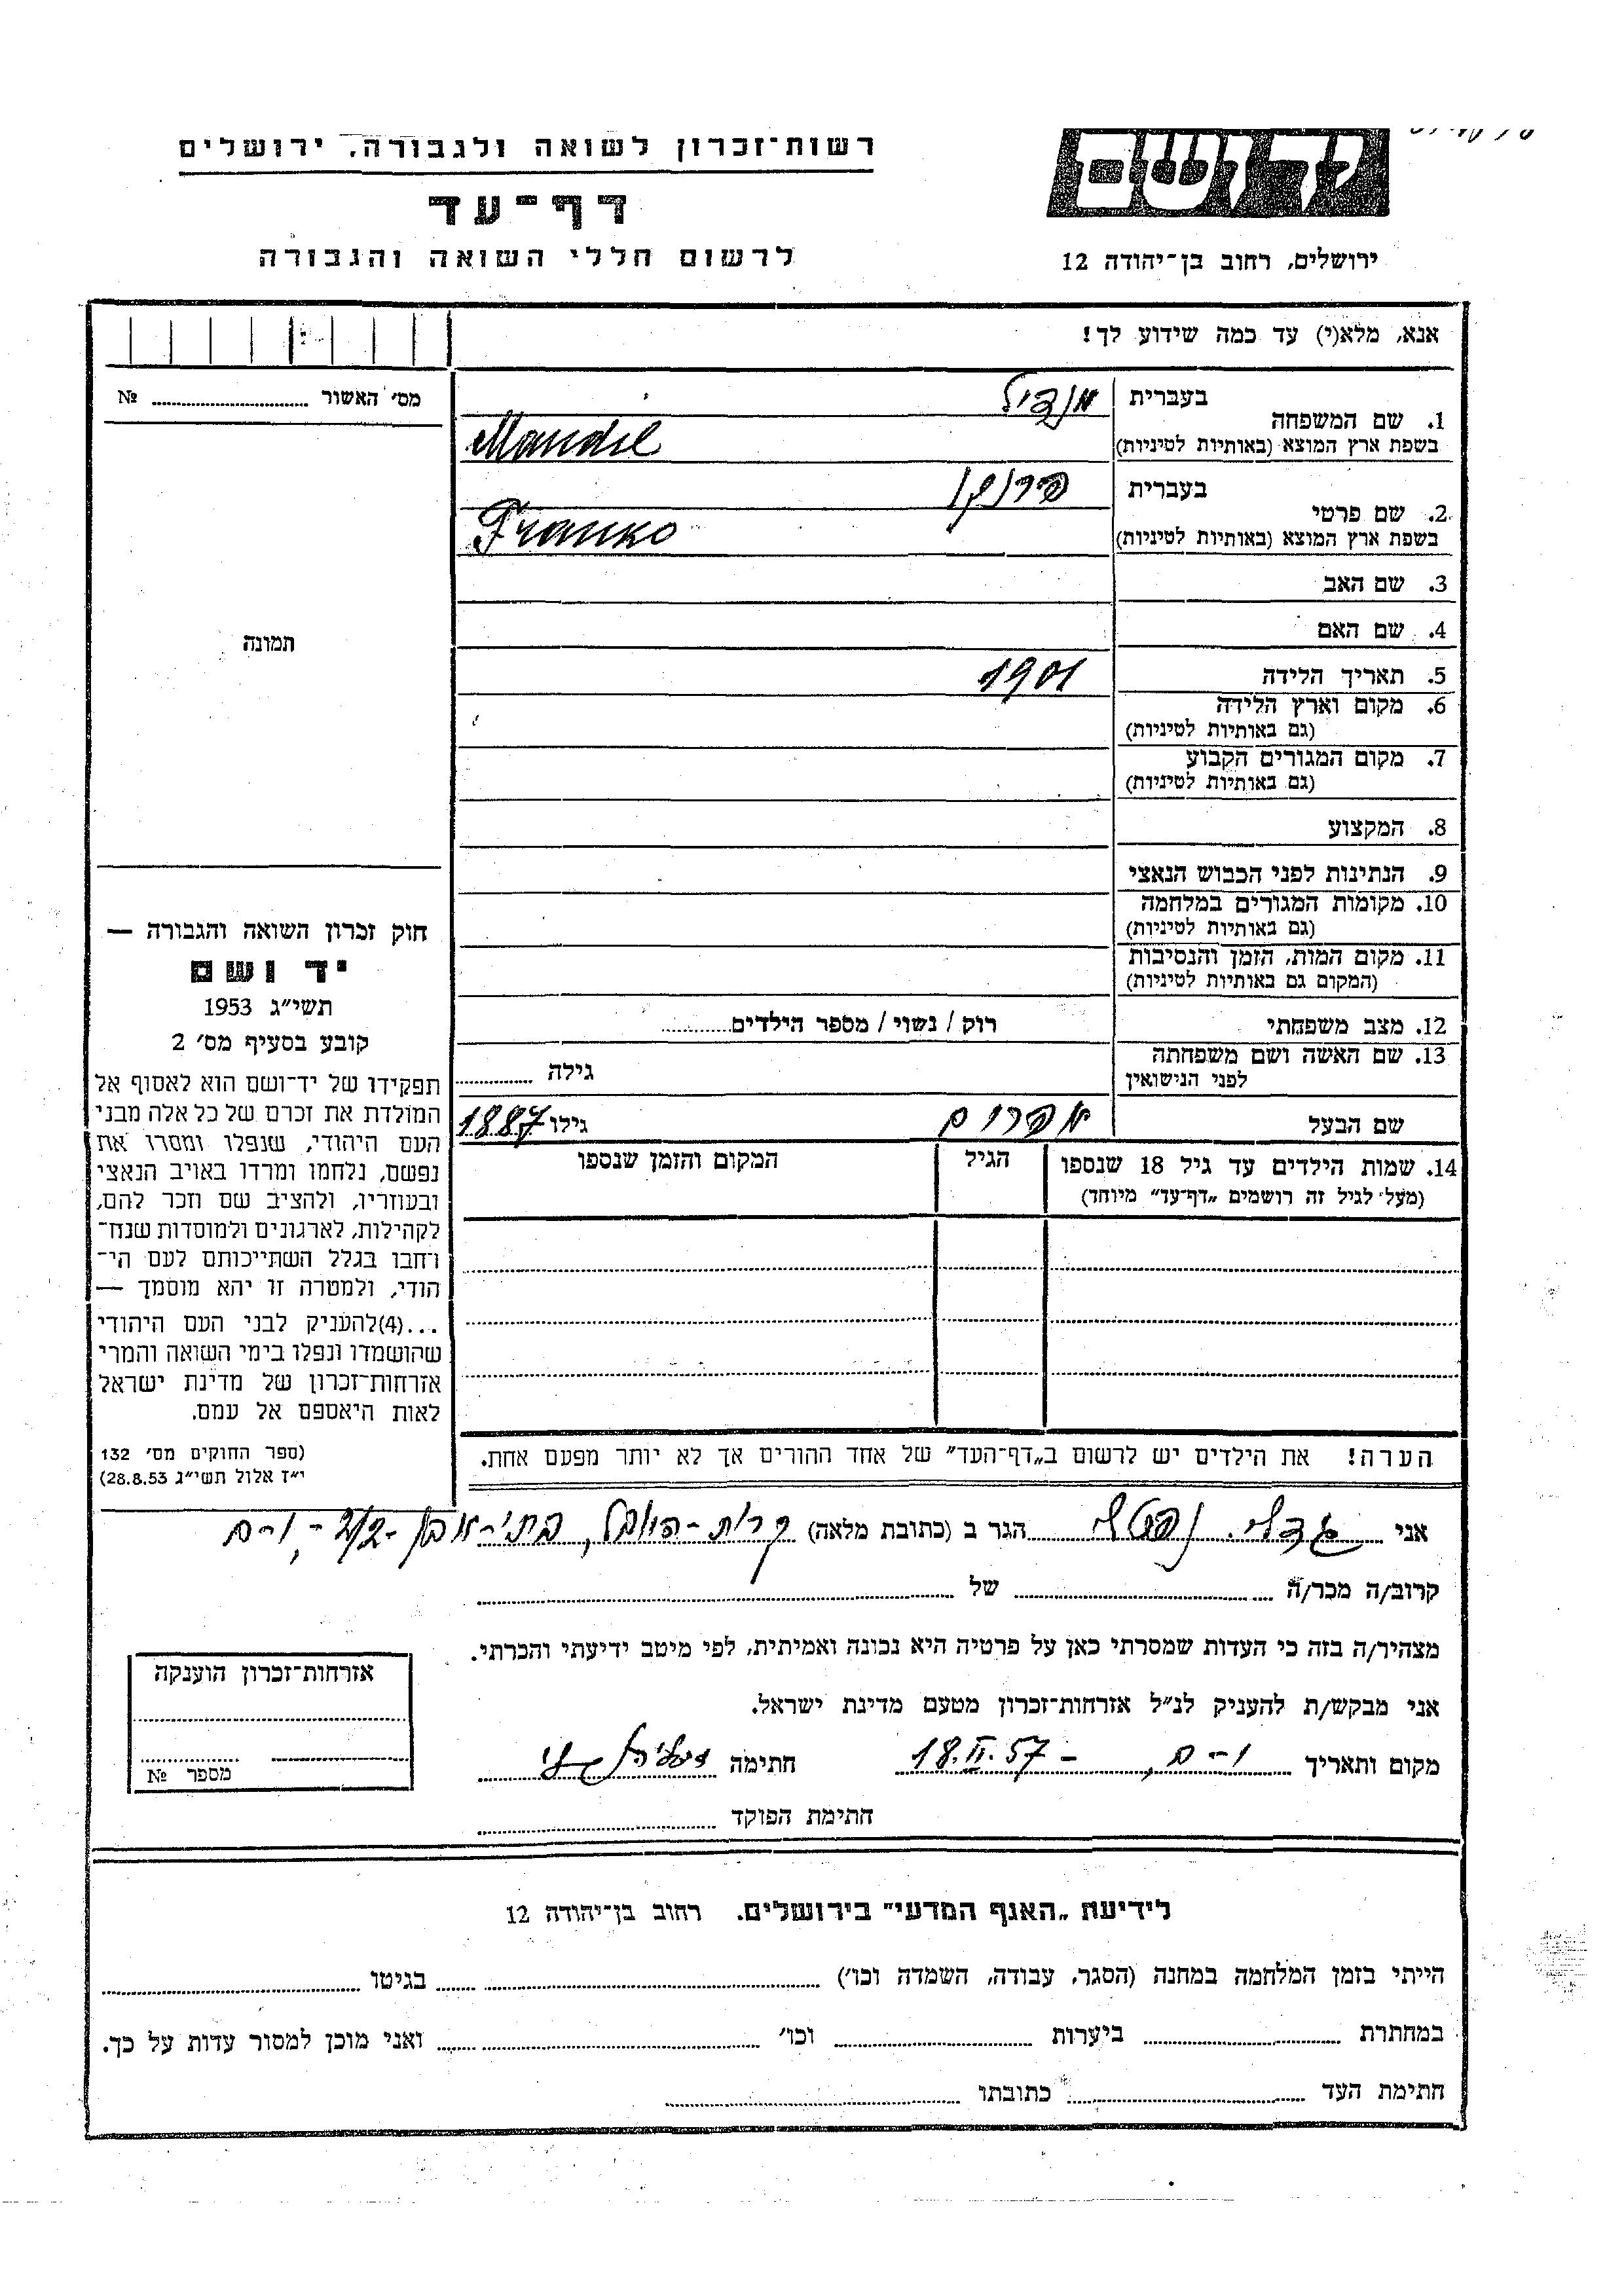 רשות־זכרון לשואה ולגבורה, ירושלים
דף־עד
לרשום חללי השואה והגבורה
יד ושם
ירושלים, רחוב בן־יהודה 12
אנא, מלא(י) עד כמה שידוע לך!
מס׳ האשור № ........
תמונה
1. שם המשפחה
בעברית מנדיל
בשפת ארץ המוצא (באותיות לטיניות) Mandil
2. שם פרטי
בעברית פרנקו
בשפת ארץ המוצא (באותיות לטיניות) Franko
3. שם האב
4. שם האם
5. תאריך הלידה 1901
6. מקום וארץ הלידה
(גם באותיות לטיניות)
7. מקום המגורים הקבוע
(גם באותיות לטיניות)
8. המקצוע
9. הנתינות לפני הכבוש הנאצי
10. מקומות המגורים במלחמה
(גם באותיות לטיניות)
11. מקום המות, הזמן והנסיבות
(המקום גם באותיות לטיניות)
12. מצב משפחתי רוק / נשוי / מספר הילדים........
13. שם האשה ושם משפחתה
לפני הנישואין גילה ........
שם הבעל אפרים גילו 1887
14. שמות הילדים עד גיל 18 שנספו הגיל המקום והזמן שנספו
(מעל לגיל זה רושמים „דף־עד” מיוחד)
הערה! את הילדים יש לרשום ב„דף־העד” של אחד ההורים אך לא יותר מפעם אחת.
חוק זכרון השואה והגבורה —
יד ושם
תשי״ג 1953
קובע בסעיף מס׳ 2
תפקידו של יד־ושם הוא לאסוף אל
המולדת את זכרם של כל אלה מבני
העם היהודי, שנפלו ומסרו את
נפשם, נלחמו ומרדו באויב הנאצי
ובעוזריו, ולהציב שם וזכר להם,
לקהילות, לארגונים ולמוסדות שנח־
רחבו בגלל השתייכותם לעם הי־
הודי, ולמטרה זו יהא מוסמך —
...(4)להעניק לבני העם היהודי
שהושמדו ונפלו בימי השואה והמרי
אזרחות־זכרון של מדינת ישראל
לאות היאספם אל עמם.
(ספר החוקים מס׳ 132
י״ז אלול תשי״ג 28.8.53)
אני הגר ב (כתובת מלאה) קרית-היובל, בתי-אבן 2/2-, י-ם
קרוב/ה מכר/ה ........ של ........
מצהיר/ה בזה כי העדות שמסרתי כאן על פרטיה היא נכונה ואמיתית, לפי מיטב ידיעתי והכרתי.
אני מבקש/ת להעניק לנ״ל אזרחות־זכרון מטעם מדינת ישראל.
מקום ותאריך י-ם, - 18.II.57 חתימה
חתימת הפוקד ........
אזרחות־זכרון הוענקה
מספר №
לידיעת „האגף המדעי” בירושלים. רחוב בן־יהודה 12
הייתי בזמן המלחמה במחנה (הסגר, עבודה, השמדה וכו׳) ........ בגיטו ........
במחתרת ........ ביערות ........ וכו׳ ........ ואני מוכן למסור עדות על כך.
חתימת העד ........ כתובתו ........